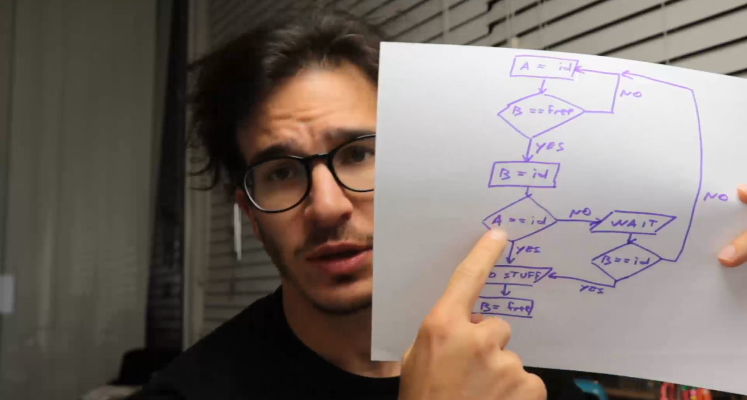 A = id
B == free
NO
YES
B = id
A == id
NO
WAIT
NO
YES
B == id
STUFF
YES
B = free